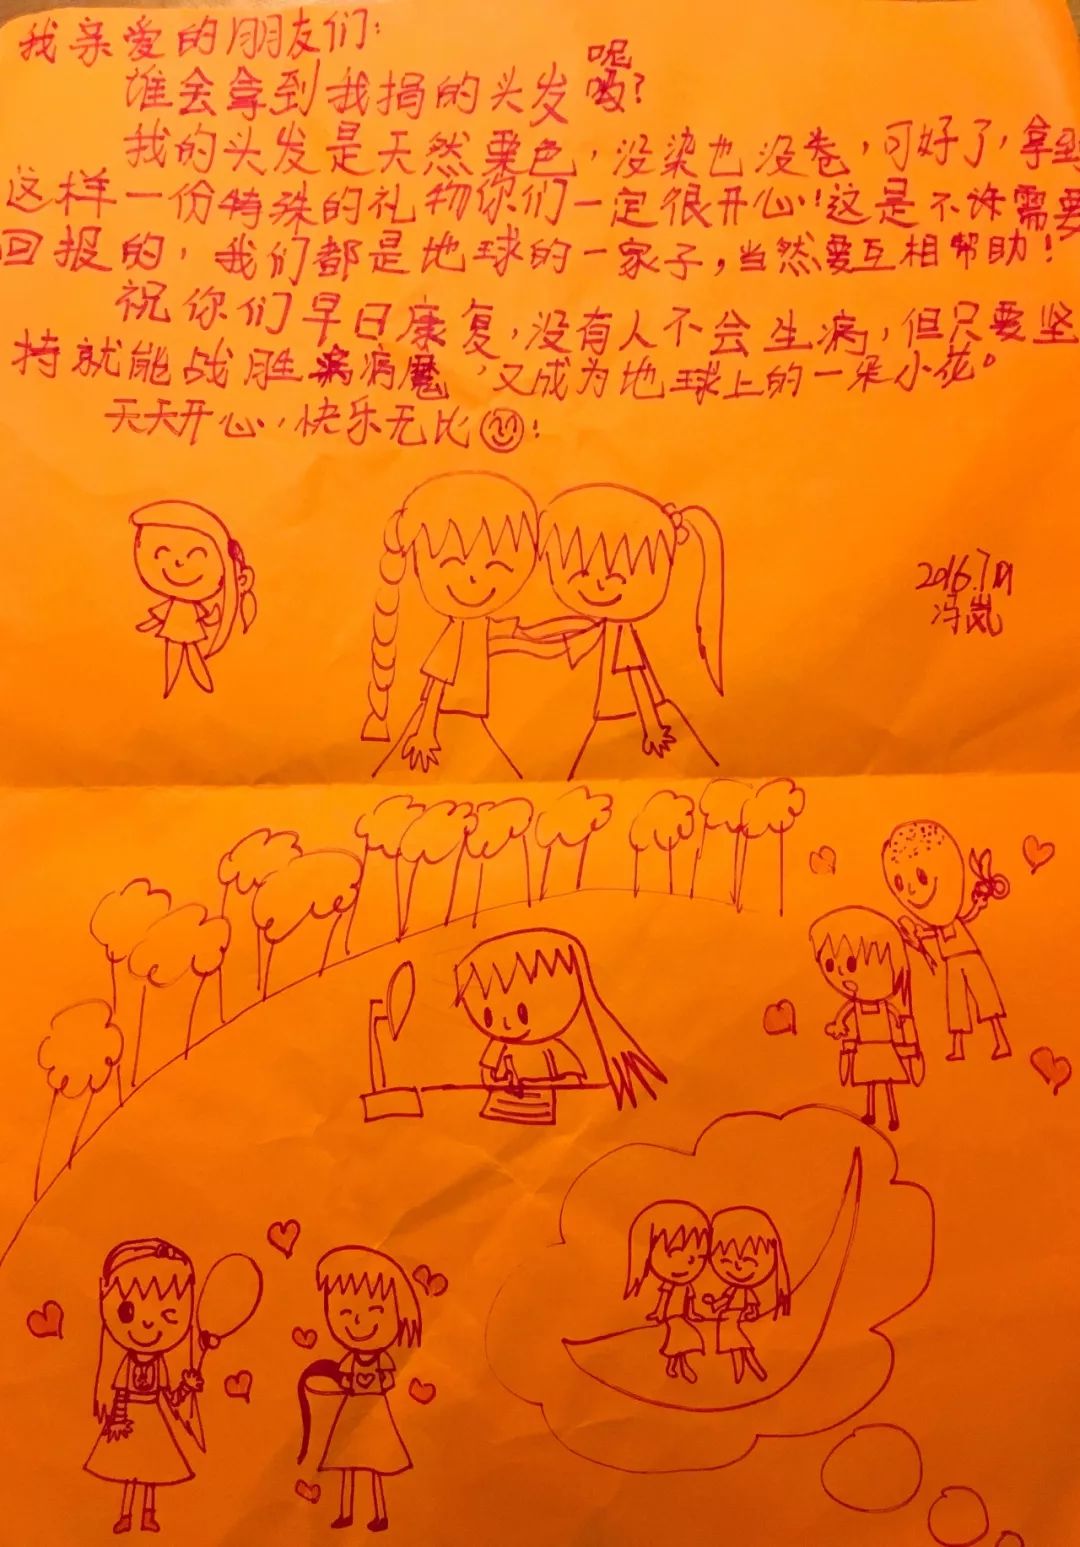 我亲爱的朋友们:
谁会拿到我捐的头发呢?
我的头发是天然栗色，没染也没卷，可好了，拿到
这样一份特殊的礼物你们一定很开心!这是不许需要
回报的，我们都是地球的一家子，当然要互相帮助!
祝你们早日康复，没有人不会生病，但只要坚
持就能战胜病魔，又成为地球上的一朵小花。
天天开心，快乐无比!
2016.7.19
冯岚